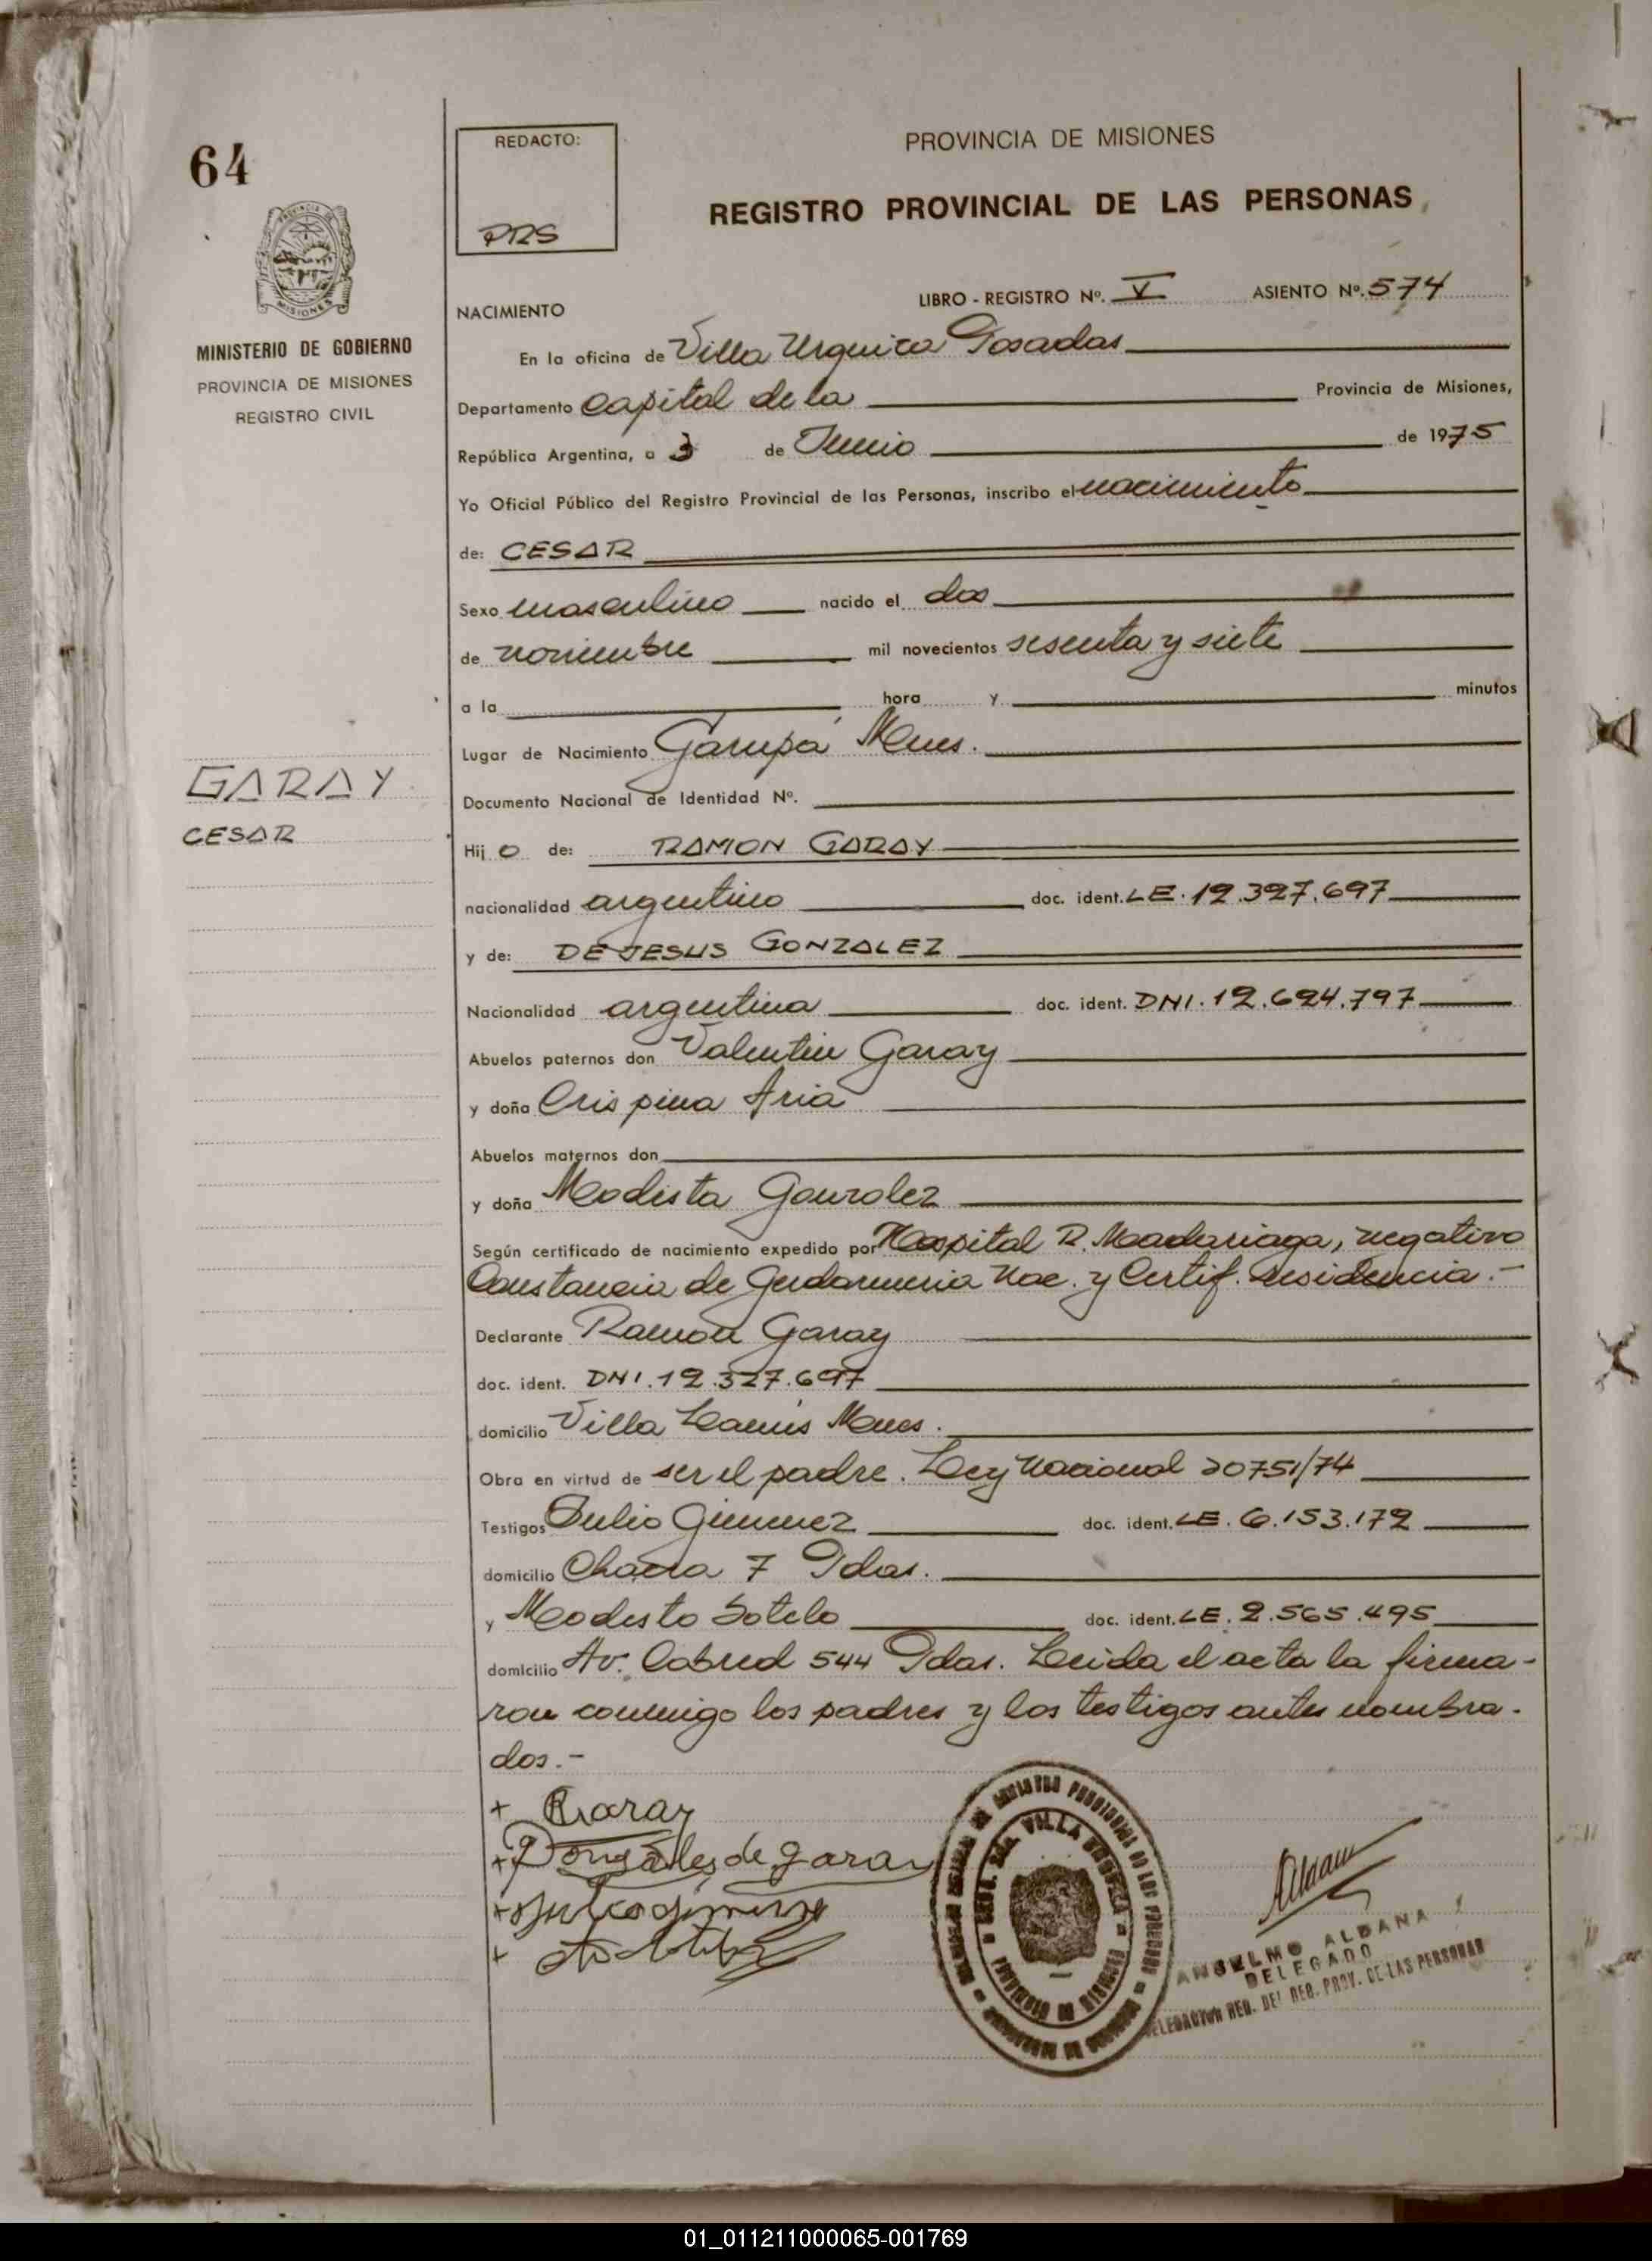 64
REDACTO:
PRS
PROVINCIA DE MISIONES
REGISTRO PROVINCIAL DE LAS PERSONAS
PROVINCIA DE
MISIONES
MINISTERIO DE GOBIERNO
PROVINCIA DE MISIONES
REGISTRO CIVIL
NACIMIENTO
LIBRO - REGISTRO Nº. V ASIENTO Nº. 574
En la oficina de Villa Urquiza Posadas
Departamento Capital de la Provincia de Misiones,
República Argentina, a 3 de Junio de 1975
Yo Oficial Público del Registro Provincial de las Personas, inscribo el nacimiento
de: CESAR
Sexo masculino nacido el dos
de noviembre mil novecientos sesenta y siete
a la hora y minutos
Lugar de Nacimiento Garupá Mnes.
GARAY
CESAR
Documento Nacional de Identidad Nº.
Hij o de: RAMON GARAY
nacionalidad argentino doc. ident. LE. 12.327.697
y de: DE JESUS GONZALEZ
Nacionalidad argentina doc. ident. DNI. 12.624.797
Abuelos paternos don Valentin Garay
y doña Crispina Aria
Abuelos maternos don
y doña Modesta Gonzalez
Según certificado de nacimiento expedido por Hospital R. Madariaga, negativo
Constancia de Gendarmeria Nac. y Certif. residencia.-
Declarante Ramon Garay
doc. ident. DNI. 12.327.697
domicilio Villa Lanús Mnes.
Obra en virtud de ser el padre. Ley Nacional 20751/74
Testigos Julio Gimenez doc. ident. LE. 6.153.172
domicilio Chacra 7 Pdas.
y Modesto Sotelo doc. ident. LE. 2.565.495
domicilio Av. Cabred 544 Pdas. Leida el acta la firma-
ron conmigo los padres y los testigos antes nombra-
dos.-
+ R Garay
+ Gonzales de garay
+ Julio gimenez
+
VILLA URQUIZA
ANSELMO ALDANA
DELEGADO
DELEGACION REG. DEL REG. PROV. DE LAS PERSONAS
01_011211000065-001769